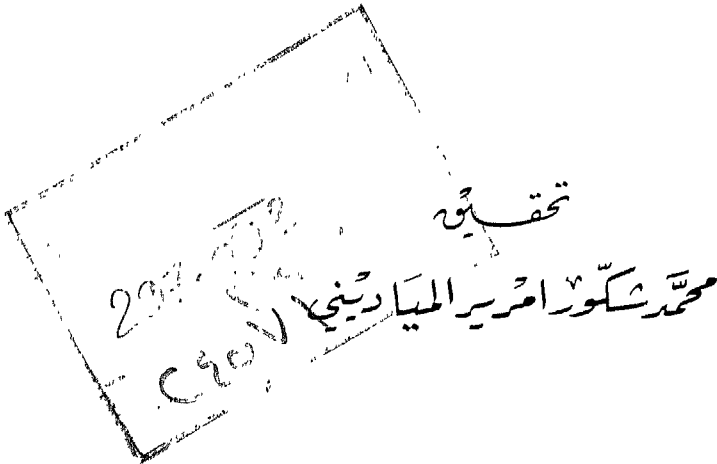 تحقيق
محمَّد شكّور امرير الميَاديني
٢٤٥٧٧